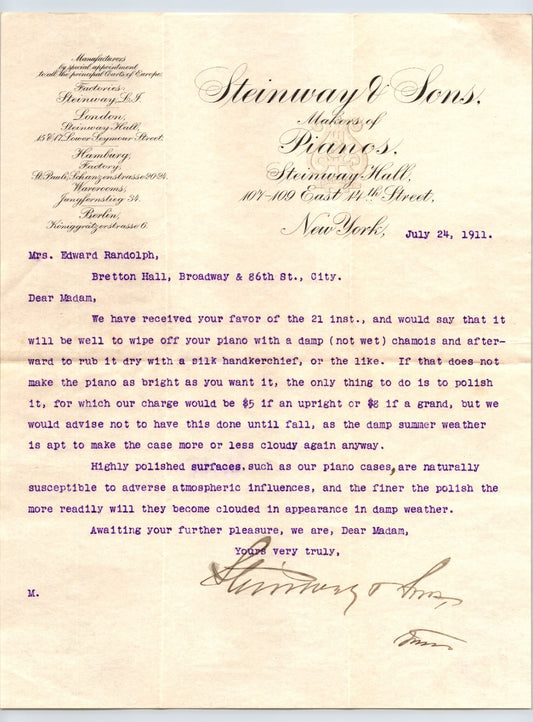 Manufacturers
by special appointment
to all the principal Courts of Europe.
Factories:
Steinway, L.I.
London,
Steinway Hall,
15 & 17, Lower Seymour Street.
Hamburg,
Factory,
St. Pauli, Schanzenstrasse 20-24.
Warerooms,
Jungfernstieg 34.
Berlin,
Königgrätzerstrasse 6.
Steinway & Sons.
Makers of
Pianos.
Steinway Hall,
107-109 East 14th Street,
New York, July 24, 1911.
Mrs. Edward Randolph,
Bretton Hall, Broadway & 86th St., City.
Dear Madam,
We have received your favor of the 21 inst., and would say that it
will be well to wipe off your piano with a damp (not wet) chamois and after-
ward to rub it dry with a silk handkerchief, or the like. If that does not
make the piano as bright as you want it, the only thing to do is to polish
it, for which our charge would be $5 if an upright or $8 if a grand, but we
would advise not to have this done until fall, as the damp summer weather
is apt to make the case more or less cloudy again anyway.
Highly polished surfaces, such as our piano cases, are naturally
susceptible to adverse atmospheric influences, and the finer the polish the
more readily will they become clouded in appearance in damp weather.
Awaiting your further pleasure, we are, Dear Madam,
Yours very truly,
Steinway & Sons,
M.